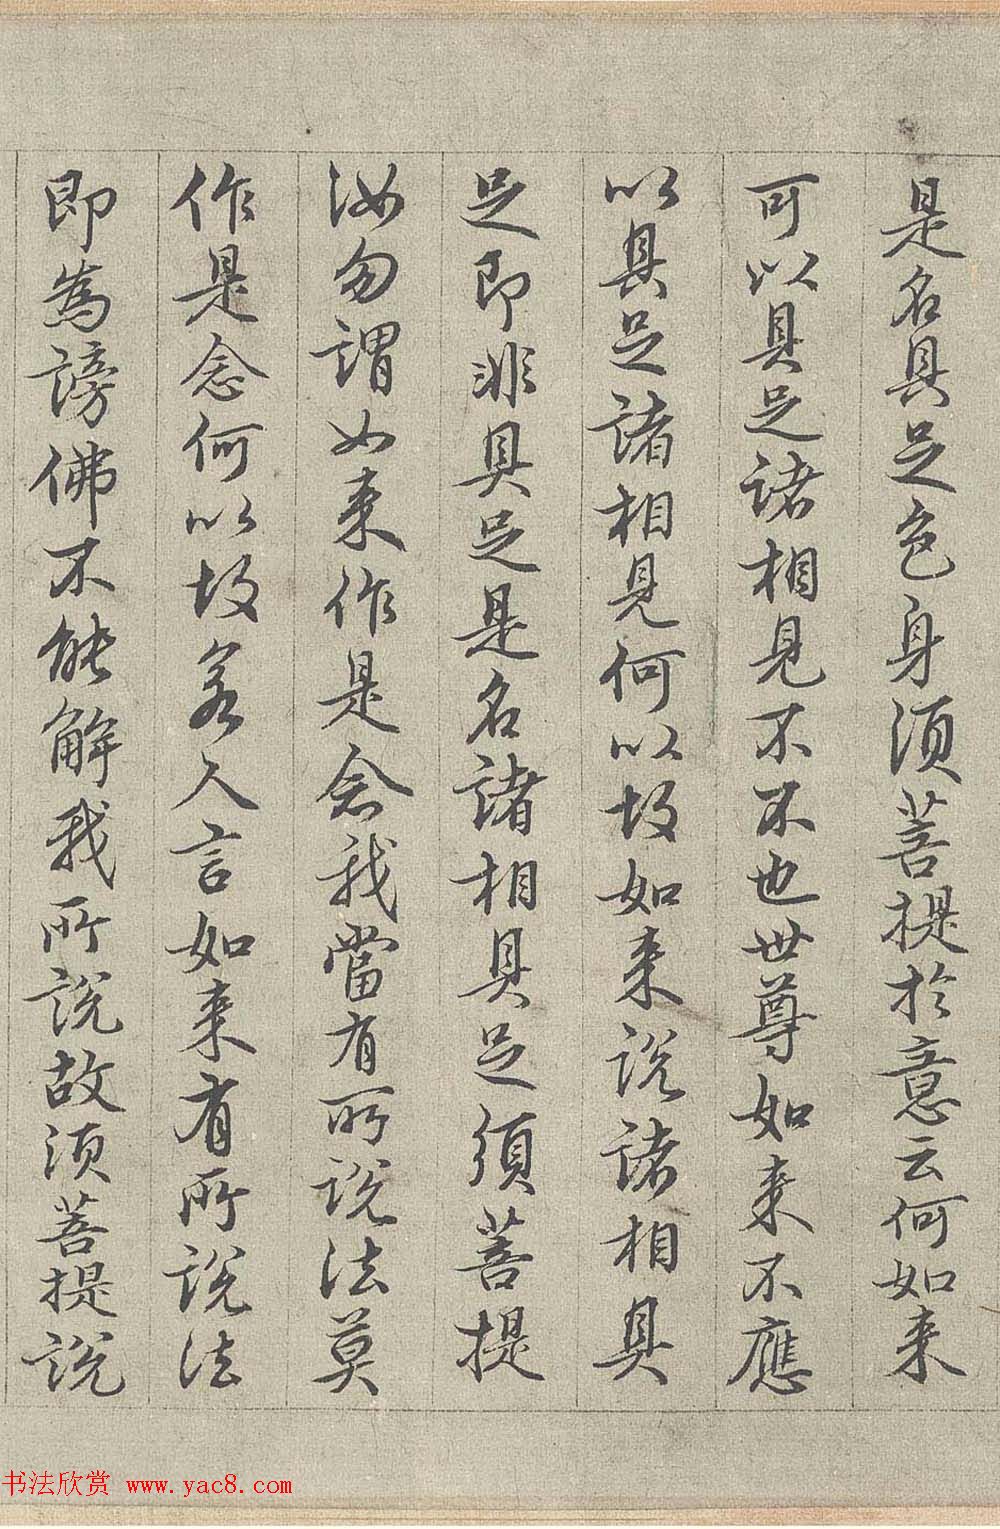 是名具足色身須菩提於意云何如来
可以具足諸相見不不也世尊如来不應
以具足諸相見何以故如来說諸相具
足即非具足是名諸相具足須菩提
汝勿謂如来作是念我當有所說法莫
作是念何以故若人言如来有所說法
即為謗佛不能解我所說故須菩提說
书法欣赏 www.yac8.com